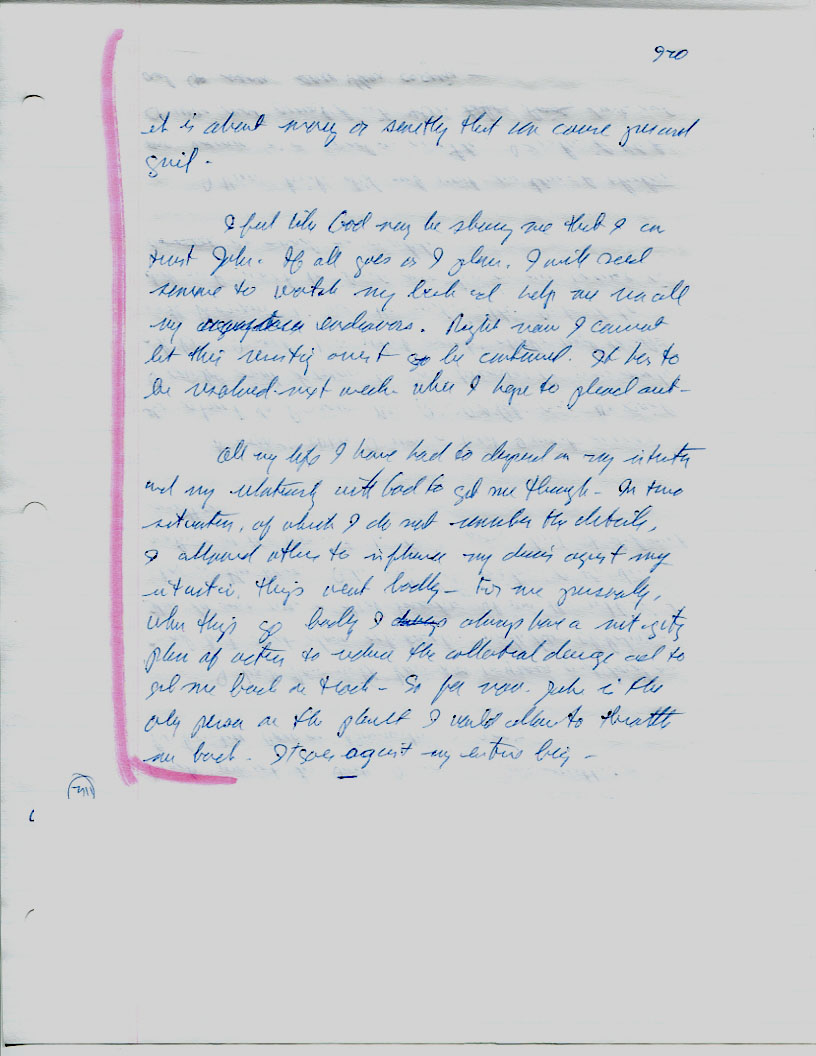 920
it is about money or something that can cause personal
guilt.
I feel like God may be showing me that I can
trust John. If all goes as I plan. I will need
someone to watch my back and help me
my endeavors. Right now I cannot
let this arrest go be continued. It has to
be resolved next week when I hope to plead out-
All my life I have had to depend on my intuition
and my relationship with God to get me through - In two
situation, of which I do not remember the details,
I allowed others to influence my decision against my
intuition. things went badly - For me personally,
when things go badly I always have a mitigating
plan of action to reduce the collateral damage and to
get me back on track - So for now. John is the
only person on the planet I would allow to
me back. It goes against my entire being -